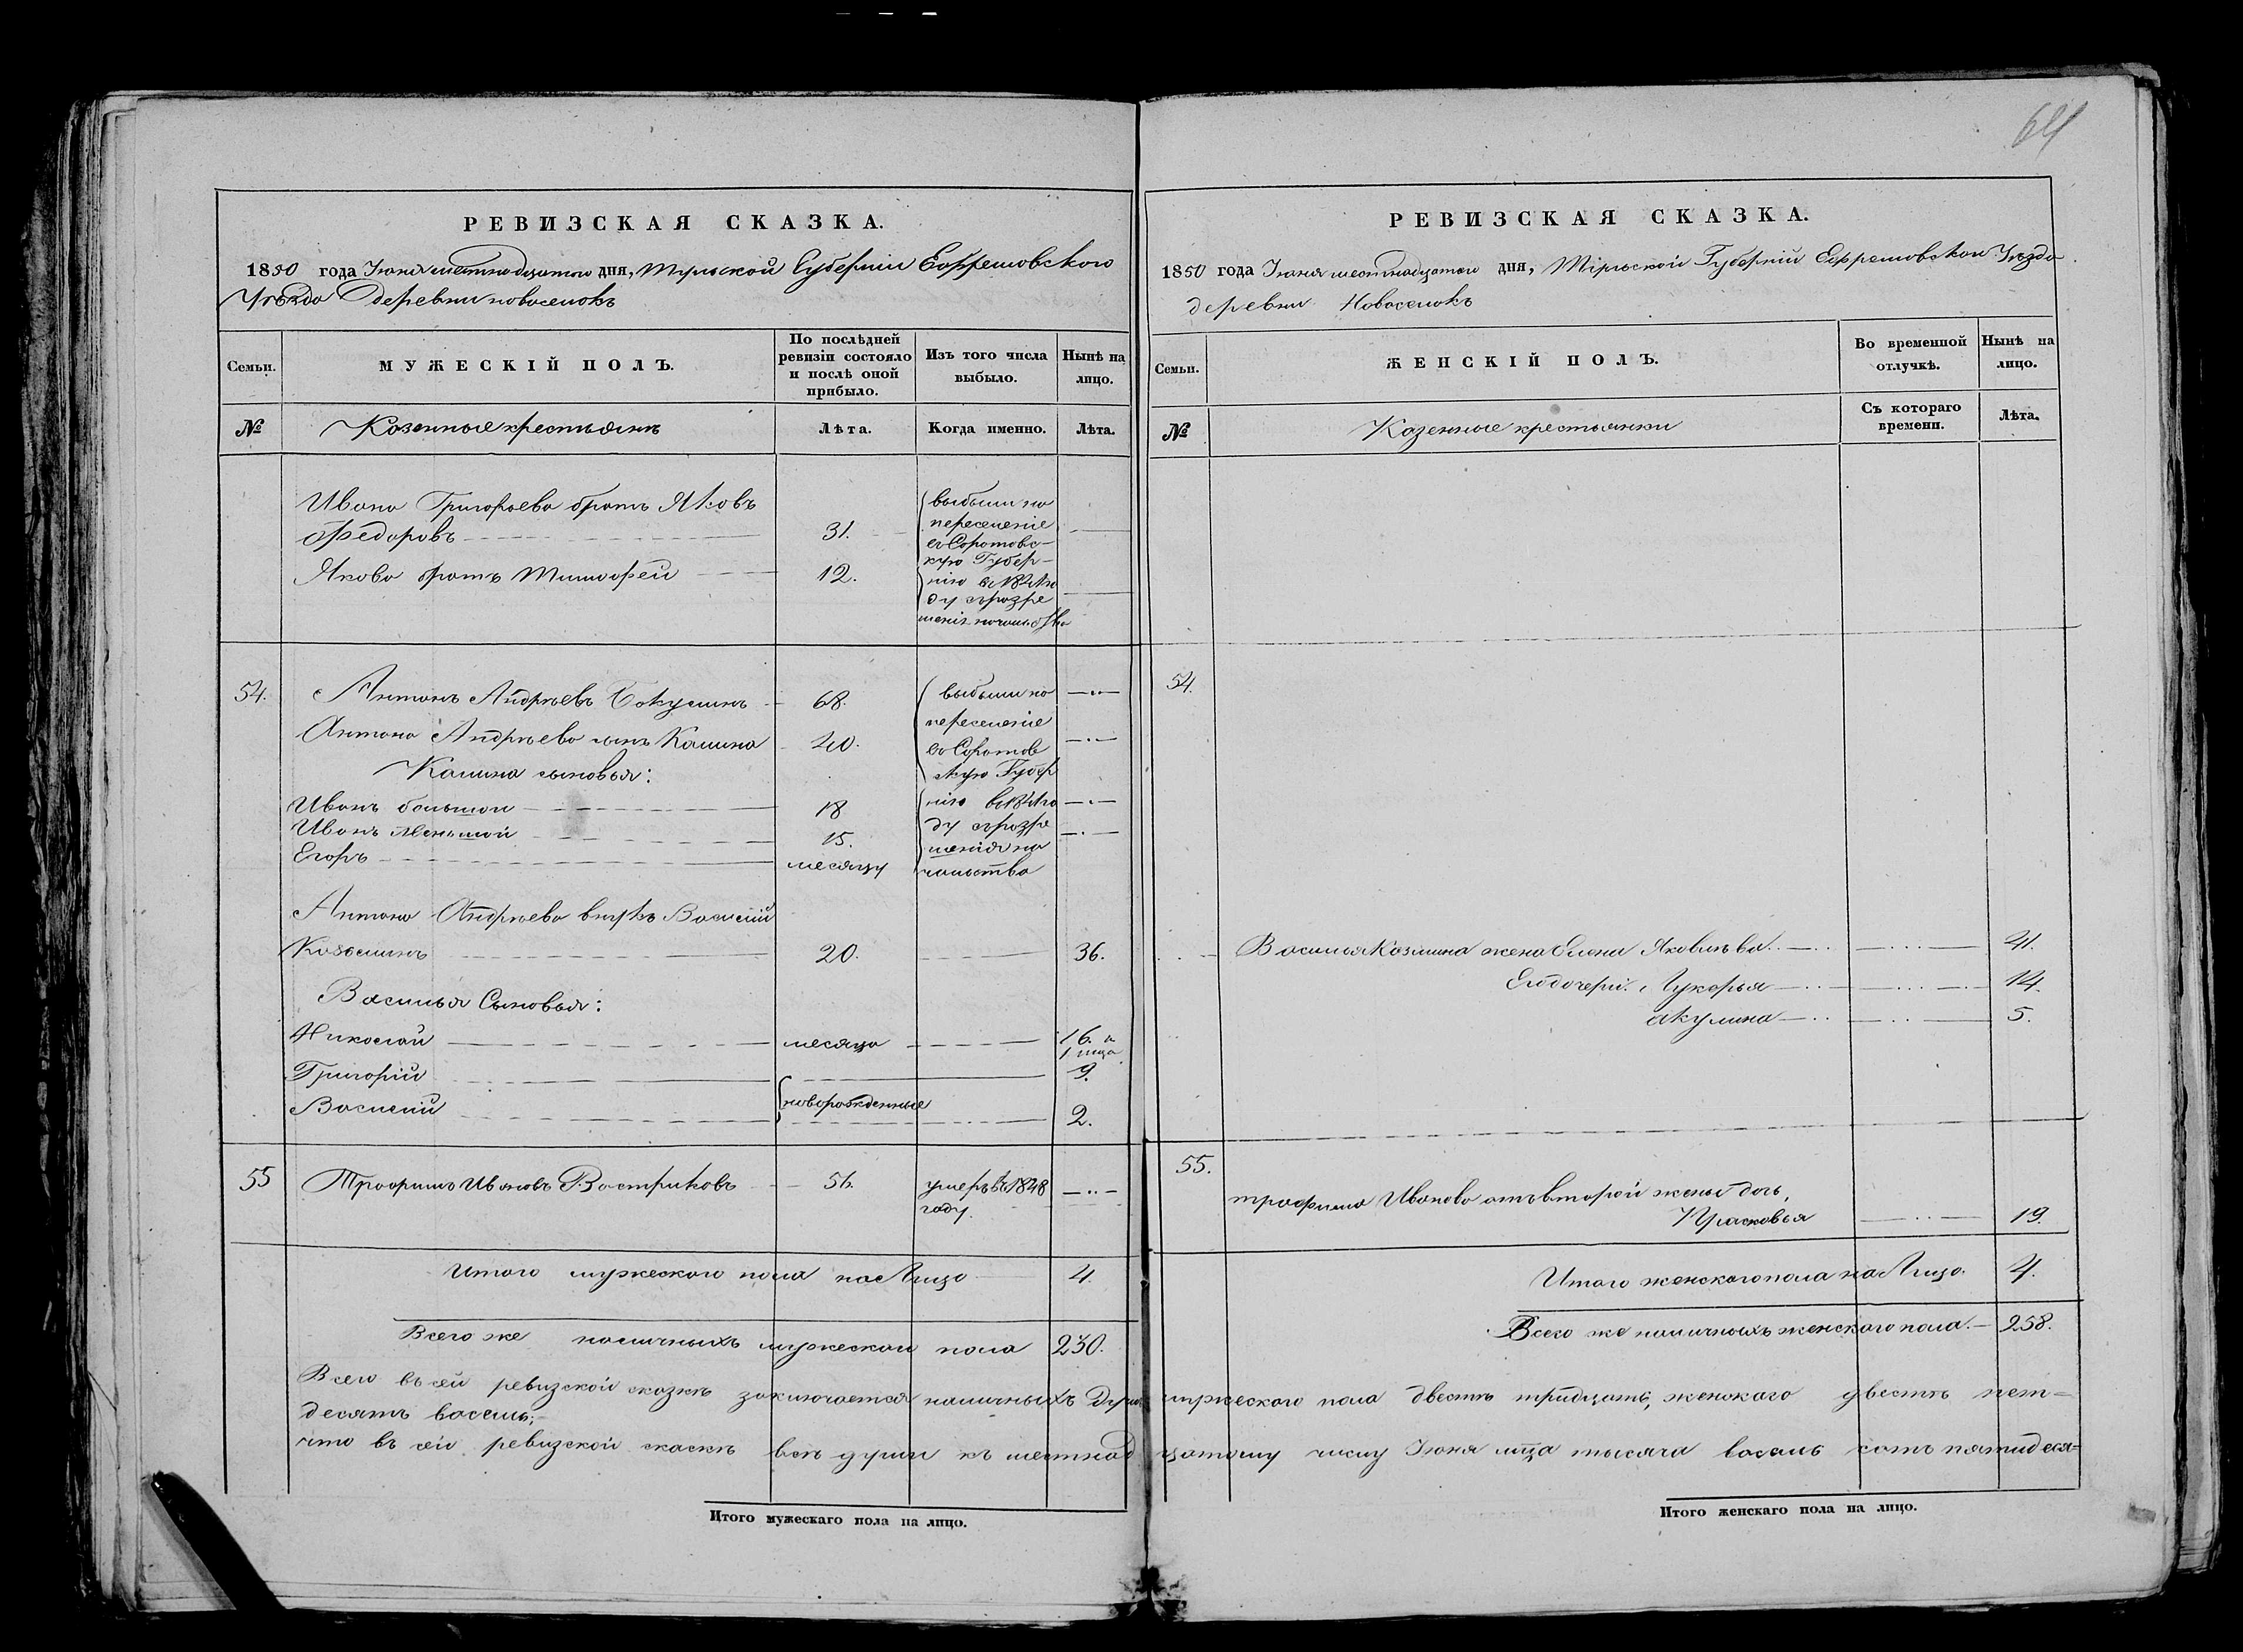 64
РЕВИЗСКАЯ СКАЗКА.
1850 года Іюня шестнадцатого дня, Тульской Губерніи Ефремовского
Уѣзда деревни новоселокъ
Семьи.
МУЖЕСКІЙ ПОЛЪ.
По послѣдней ревизіи состояло и послѣ оной прибыло.
Изъ того числа выбыло.
Нынѣ на лицо.
№
Козенные крестьяне
Лѣта.
Когда именно.
Лѣта.
Ивана Григорьева братъ Яковъ
Федоровъ 31.
Якова братъ Тимофей 12.
выбыли на
переселеніе
въ Саратовс-
кую Губер-
нію
ду съ разре
шенія
54. Антонъ Андрѣевъ 68.
Антона Андрѣева сынъ Калина 40.
Калина сыновья:
Иванъ большой 18
Иванъ Меньшой 15.
Егоръ месяцу
выбыли на
переселеніе
въ Саратов
скую Губер
нію
ду съ разре
шенія на
чальства
Антона Андрѣева внукъ Василій
Козминъ 20. 36.
Василья Сыновья:
Николай месяца 16. и
1 мца
Григорій 9.
новорожденные
Василій 2.
55 Трофимъ Ивановъ Востриковъ 56. умеръ въ 1848
году.
Итого мужеского пола на Лицо 4.
Всего же наличныхъ мужеского пола 230.
РЕВИЗСКАЯ СКАЗКА.
1850 года Іюня шестнадцатого дня, Тульской Губерній Ефремовского Уѣзда
деревни Новоселокъ
Семьи.
ЖЕНСКІЙ ПОЛЪ.
Во временной отлучкѣ.
Нынѣ на лицо.
№
Казенные крестьянки
Съ котораго времени.
Лѣта.
54.
Василья Козмина жена Елена Яковлѣва 41.
Его дочери: Лукерья 14.
Акулина 5.
55.
трофима Иванова отъ второй жены дочь,
Прасковья 19.
Итого женского пола на Лицо. 4.
Всего же наличныхъ женского пола. 258.
Всего въ сей ревизской сказкѣ заключается наличныхъ Душъ мужеского пола двестѣ тридцать, женского двестѣ пет-
десятъ восемь;
что въ сей ревизской сказкѣ всѣ души къ шестнадцатому числу Іюня мца тысяча восемь сотъ пятидеся-
Итого мужескаго пола на лицо.
Итого женскаго пола на лицо.